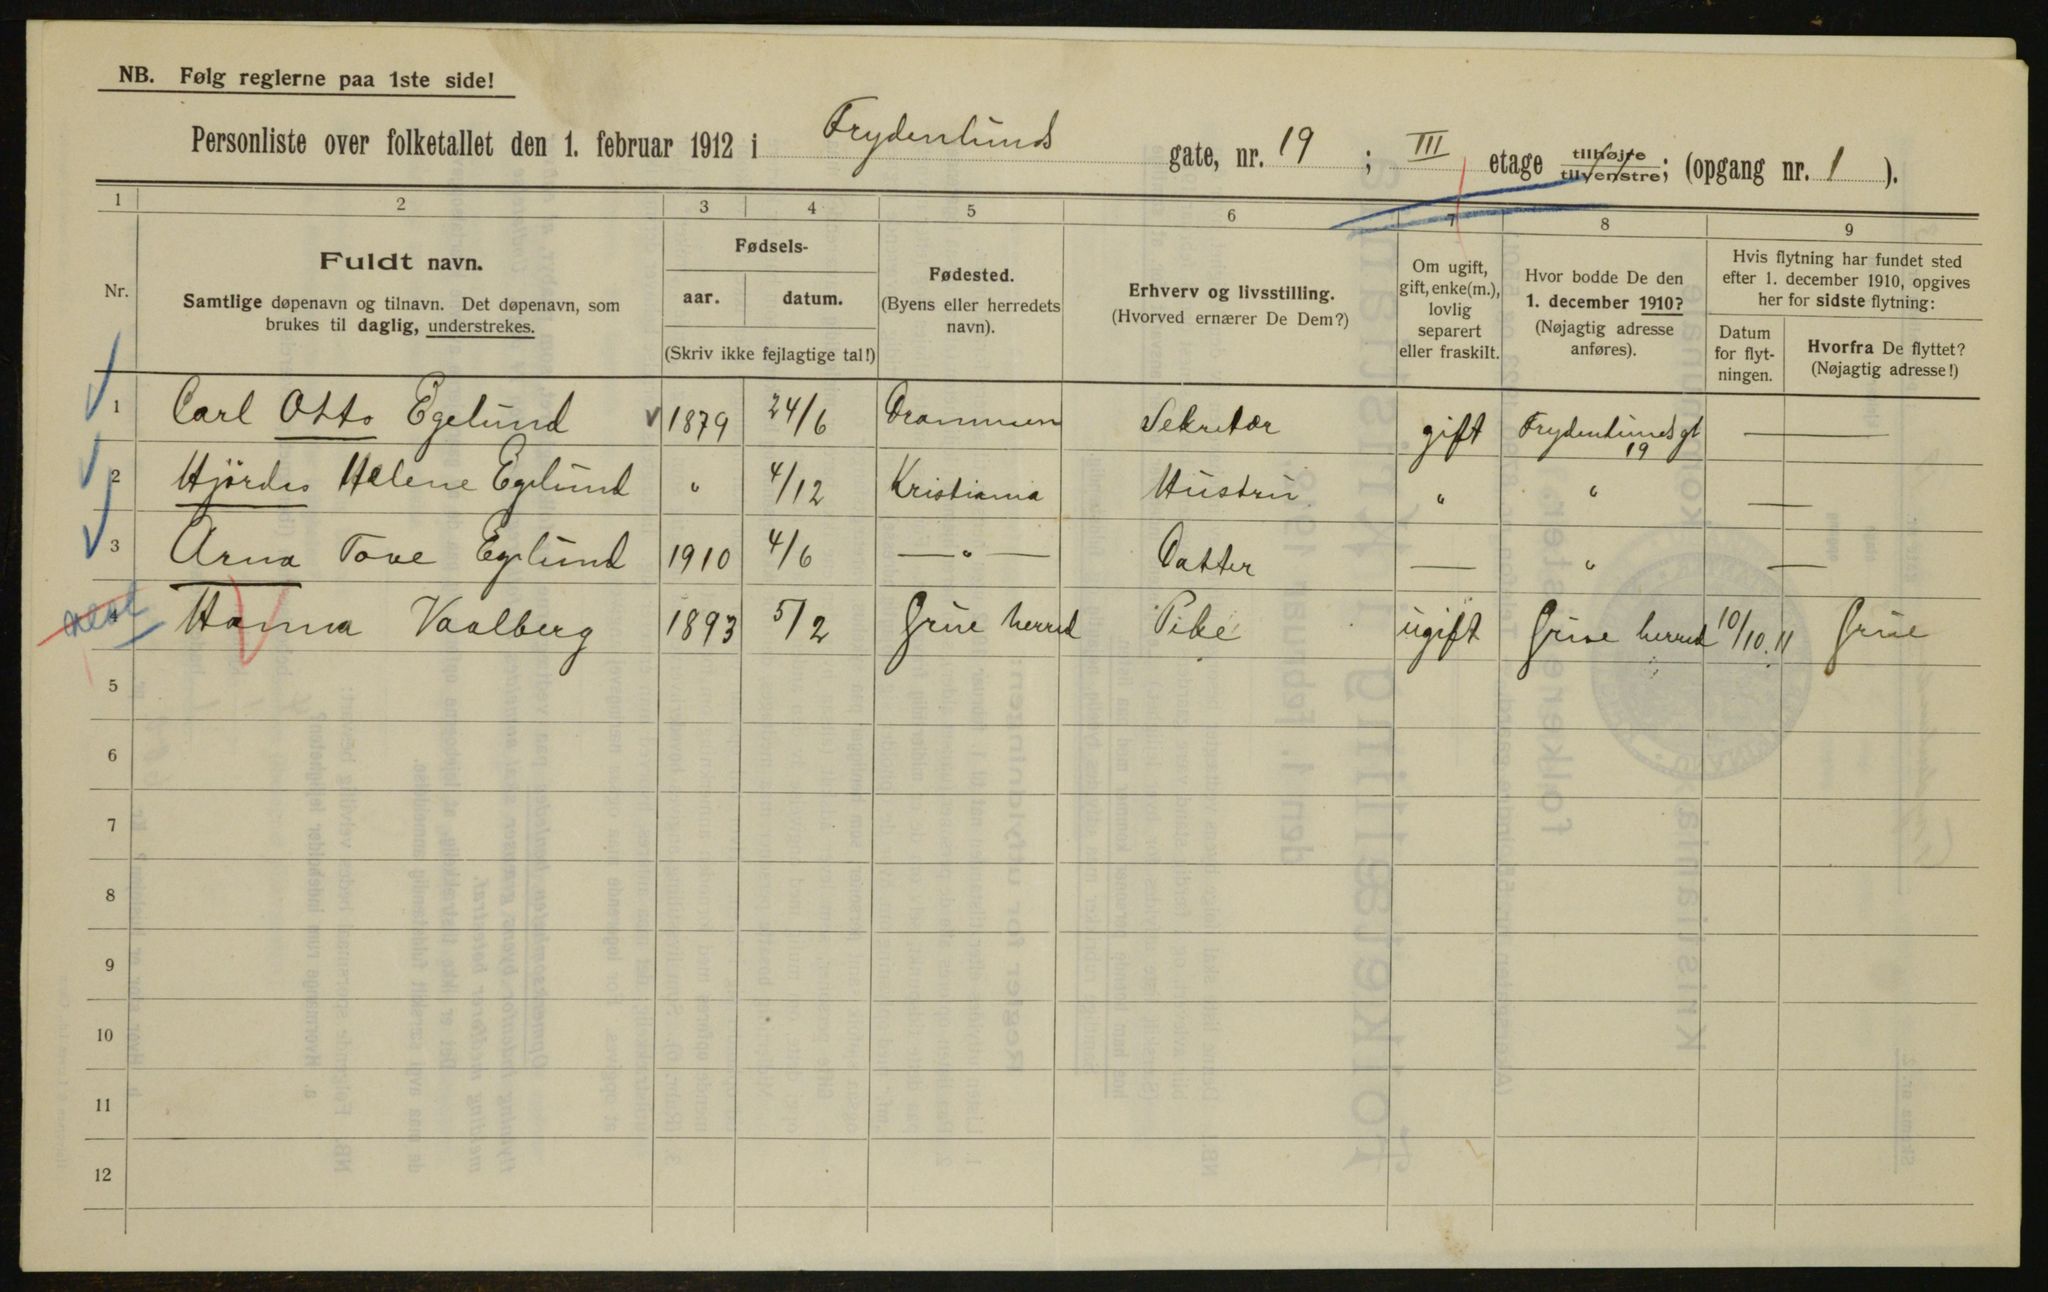 NB. Følg reglerne paa 1ste side!
Personliste over folketallet den 1. februar 1912 i Frydenlunds gate, nr. 19 ; III etage tilhøjre tilvenstre; (opgang nr. 1 ).
1 2 3 4 5 6 7 8 9
Nr.
Fuldt navn.
Samtlige døpenavn og tilnavn. Det døpenavn, som
brukes til daglig, understrekes.
Fødsels-
aar. datum.
(Skriv ikke fejlagtige tal!)
Fødested.
(Byens eller herredets
navn).
Erhverv og livsstilling.
(Hvorved ernærer De Dem?)
Om ugift,
gift, enke(m.),
lovlig
separert
eller fraskilt.
Hvor bodde De den
1. december 1910?
(Nøjagtig adresse
anføres).
Hvis flytning har fundet sted
efter 1. december 1910, opgives
her for sidste flytning:
Datum
for flyt-
ningen.
Hvorfra De flyttet?
(Nøjagtig adresse!)
1 Carl Otto Egelund 1879 24/6 Drammen Sekretær gift Frydenlunds gt 19 —
2 Hjördis Helene Egelund " 4/12 Kristiania Hustru " " —
3 Arna Tove Egelund 1910 4/6 — " — Datter — " —
4 Hanna Vaalberg 1893 5/2 Grue herred Pike ugift Grue herred 10/10. 11 Grue
5
6
7
8
9
10
11
12